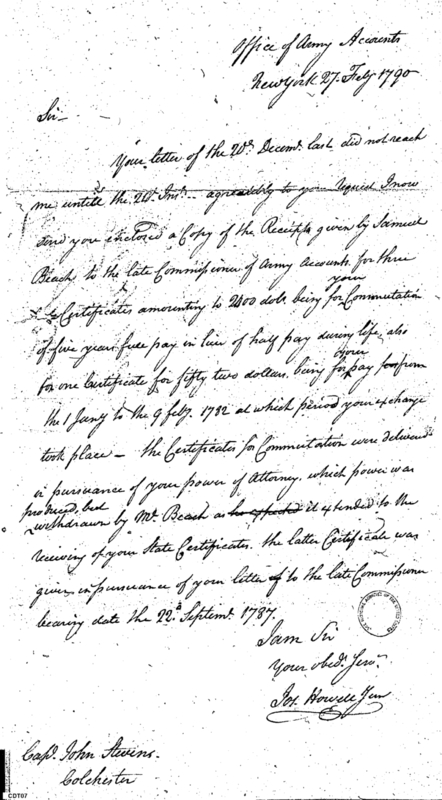 Office of Army Accounts
New York 27. Feby 1790
Sir
Your letter of the 20th. Decemr. last did not reach
me untill the 24t. Inst. agreeably to your request I now
send you enclosed a Copy of the Receipts given by Samuel
Beach to the late Commissioner of Army Accounts for three
your
Certificates amounting to 2400 dolls. being for Commutation
of five years full pay in lieu of half pay during life, also
your
for one Certificate for fifty two dollars. being for pay from
the 1 Jany to the 9 feby. 1782 at which period your exchange
took place — the Certificates for Commutation were delivered
in pursuance of your power of Attorney, which power was
produced, but
withdrawn by Mr. Beach as he expected it extended to the
receiving of your State Certificates. the latter Certificate was
given in pursuance of your letter of to the late Commissioner
bearing date the 22d. Septemr. 1787.
I am Sir
Your obedt. Servt.
Jos. Howell Jun
Capt. John Stevens.
Colchester
CDT07